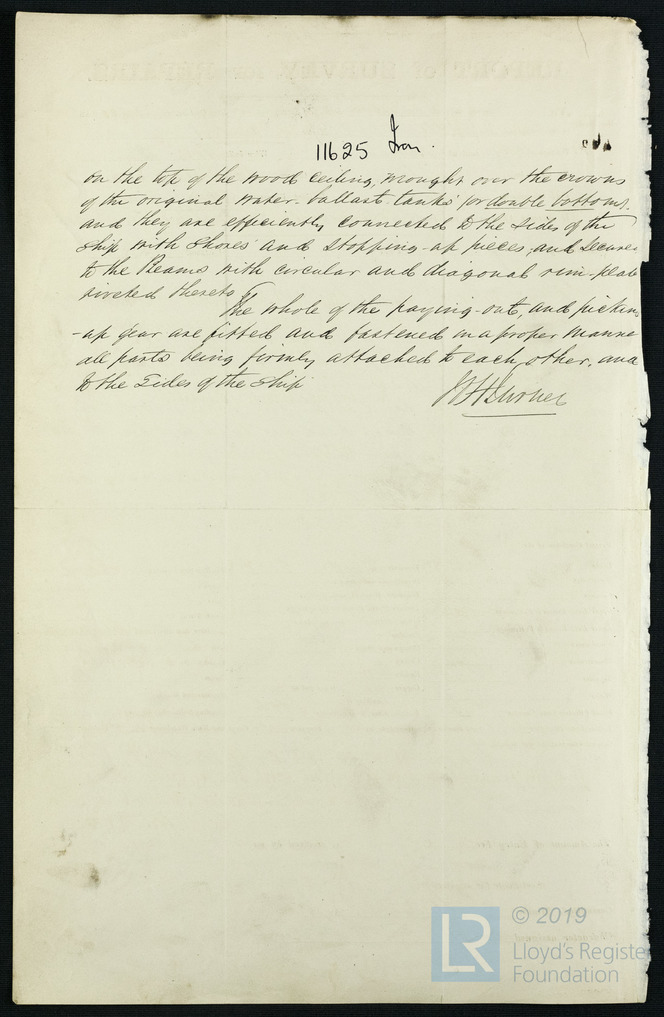 11625 Iron.
on the top of the wood ceiling, wrought over the crowns
of the original water-ballast tanks (or double bottoms)
and they are efficiently connected to the sides of the
ship with shores and stopping-up pieces, and secure
to the Beams with circular and diagonal rim-plate
riveted thereto
The whole of the paying-out, and pickin
-up gear are fitted and fastened in a proper manne
all parts being firmly attached to each other, and
to the sides of the ship
LR
© 2019
Lloyd's Register
Foundation